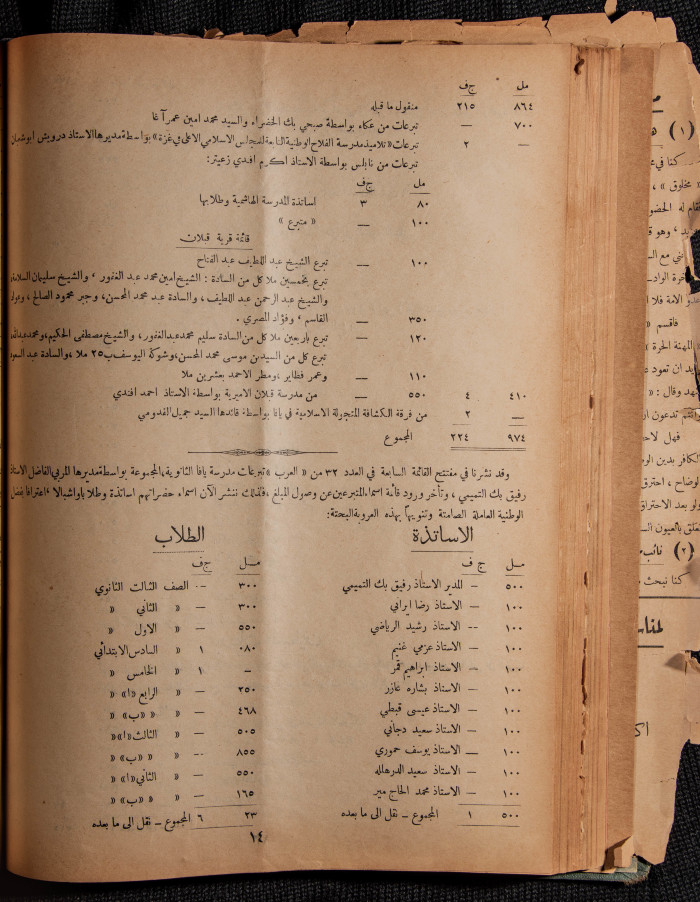 مل ج ف
٨٦٤ ٢١٥ منقول ما قبله
٧٠٠ — تبرعات من عكاء بواسطة صبحي بك الخضراء والسيد محمد امين عمر آغا
— ٢ تبرعات «تلاميذ مدرسة الفلاح الوطنية التابعة للمجلس الاسلامي الاعلى في غزة» بواسطة مديرها الاستاذ درويش
تبرعات من نابلس بواسطة الاستاذ اكرم افندي زعيتر:
مل ج ف
٨٠ ٣ اساتذة المدرسة الهاشمية وطلابها
١٠٠ — « متبرع »
قائمة قرية قبلان
١٠٠ — تبرع الشيخ عبد اللطيف عبد الفتاح
تبرع بخمسين ملا كل من السادة : الشيخ امين محمد عبد الغفور ، والشيخ سليمان
والشيخ عبد الرحمن عبد اللطيف ، والسادة عبد محمد المحسن، وجبر محمود الصالح ،
٣٥٠ — القاسم ، وفؤاد المصري .
١٢٠ — تبرع باربعين ملا كل من السادة سليم محمد عبد الغفور، والشيخ مصطفى الحكيم،
تبرع كل من السيدين موسى محمد المحسن، وشوكة اليوسف ب٢٥ ملا ، والسادة عبد
١١٠ — وعمر فظاير ، ومطر الاحمد بعشرين ملا
٤١٠ ٤ ٥٥٠ — من مدرسة قبلان الاميرية بواسطة الاستاذ احمد افندي
— ٢ من فرقة الكشافة المتجولة الاسلامية في يافا بواسطة قائدها السيد جميل القدومي
٩٧٤ ٢٢٤ المجموع
وقد نشرنا في مفتتح القائمة السابعة في العدد ٣٢ من « العرب » تبرعات مدرسة يافا الثانوية، المجموعة بواسطة مديرها المربي الفاضل الاستاذ
رفيق بك التميمي ، وتأخر ورود قائمة اسماء المتبرعين عن وصول المبلغ ، فلذلك ننشر الآن اسماء حضراتهم اساتذة وطلابا واشبالا ، اعترافا بفضل
الوطنية العاملة الصامتة وتنويها بهذه العروبة البحتة:
الاساتذة
مل ج ف
٥٠٠ — المدير الاستاذ رفيق بك التميمي
١٠٠ — الاستاذ رضا ايراني
١٠٠ -- الاستاذ رشيد الرياضي
١٠٠ — الاستاذ عزمي غنيم
١٠٠ — الاستاذ ابراهيم قمر
١٠٠ — الاستاذ بشاره عازر
١٠٠ — الاستاذ عيسى قبطي
١٠٠ — الاستاذ سعيد دجاني
١٠٠ — الاستاذ يوسف حموري
١٠٠ — الاستاذ سعيد الدرهلله
١٠٠ — الاستاذ محمد الحاج مير
٥٠٠ ١ المجموع – نقل الى ما بعده
الطلاب
مل ج ف
٣٠٠ -- الصف الثالث الثانوي
٣٠٠ — « الثاني «
٥٥٠ — « الاول «
٠٨٠ ١ « السادس الابتدائي
- ١ « الخامس «
٢٥٠ — « الرابع «ا» «
٤٦٨ — « « «ب» «
٥٠٥ — « الثالث «ا» «
٨٥٥ -- « « «ب» «
٥٥٠ — « الثاني «ا» «
١٦٥ — « « «ب» «
٢٣ ٦ المجموع – نقل الى ما بعده
١٤
(١)
« مخلوق » ،
فاقسم «
« المهنة الحرة »
(٢)
كنا نبحث